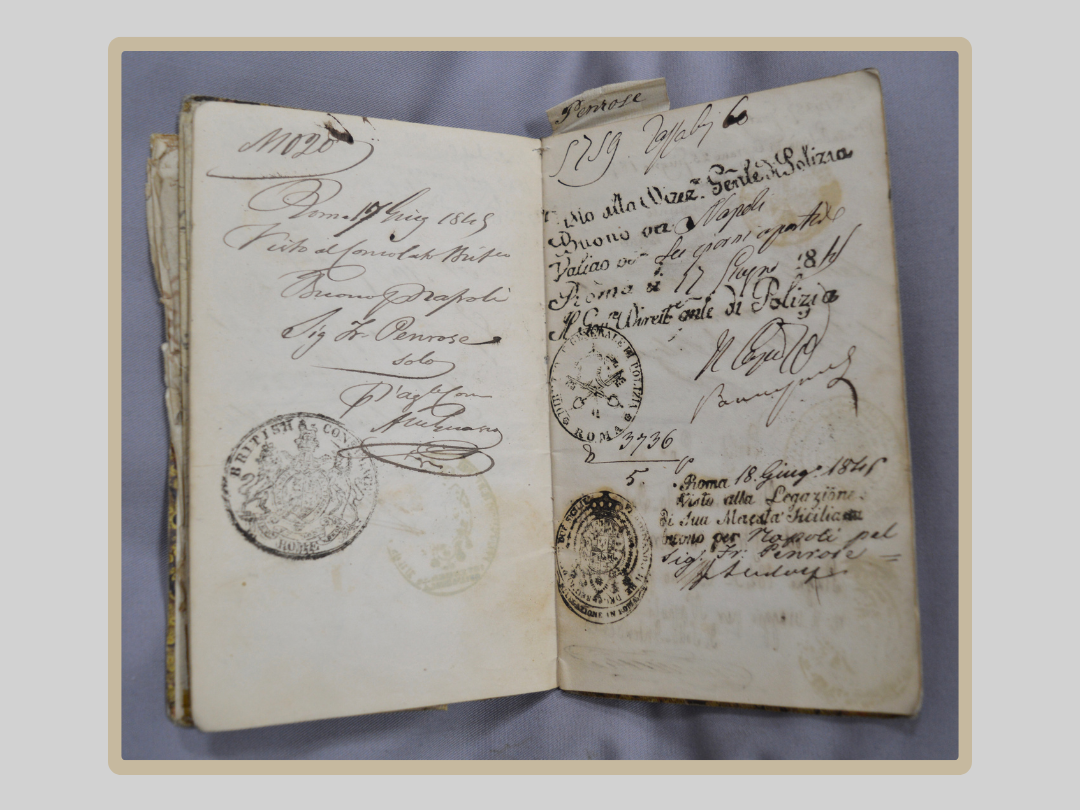 M020
Roma 17 Giug 1845
Visto al Consolato Britco
Buono p Napoli
Sig Fr. Penrose
solo
BRITISH CON
ROME
Penrose
5759 60
Visto alla Direz. Genle di Polizia
Buono per Napoli
Valido per sei giorni a partire
Roma a 17 Giugno 184
Il Direit. Gnle di Polizia
GENERALE DI POLIZIA
ROMA
3736
5
Roma 18. Giug. 1845
Visto alla Legazione
di sua Maestà Siciliana
buono per Napoli pel
Sig. Fr. Penrose
LEGAZIONE IN ROMA